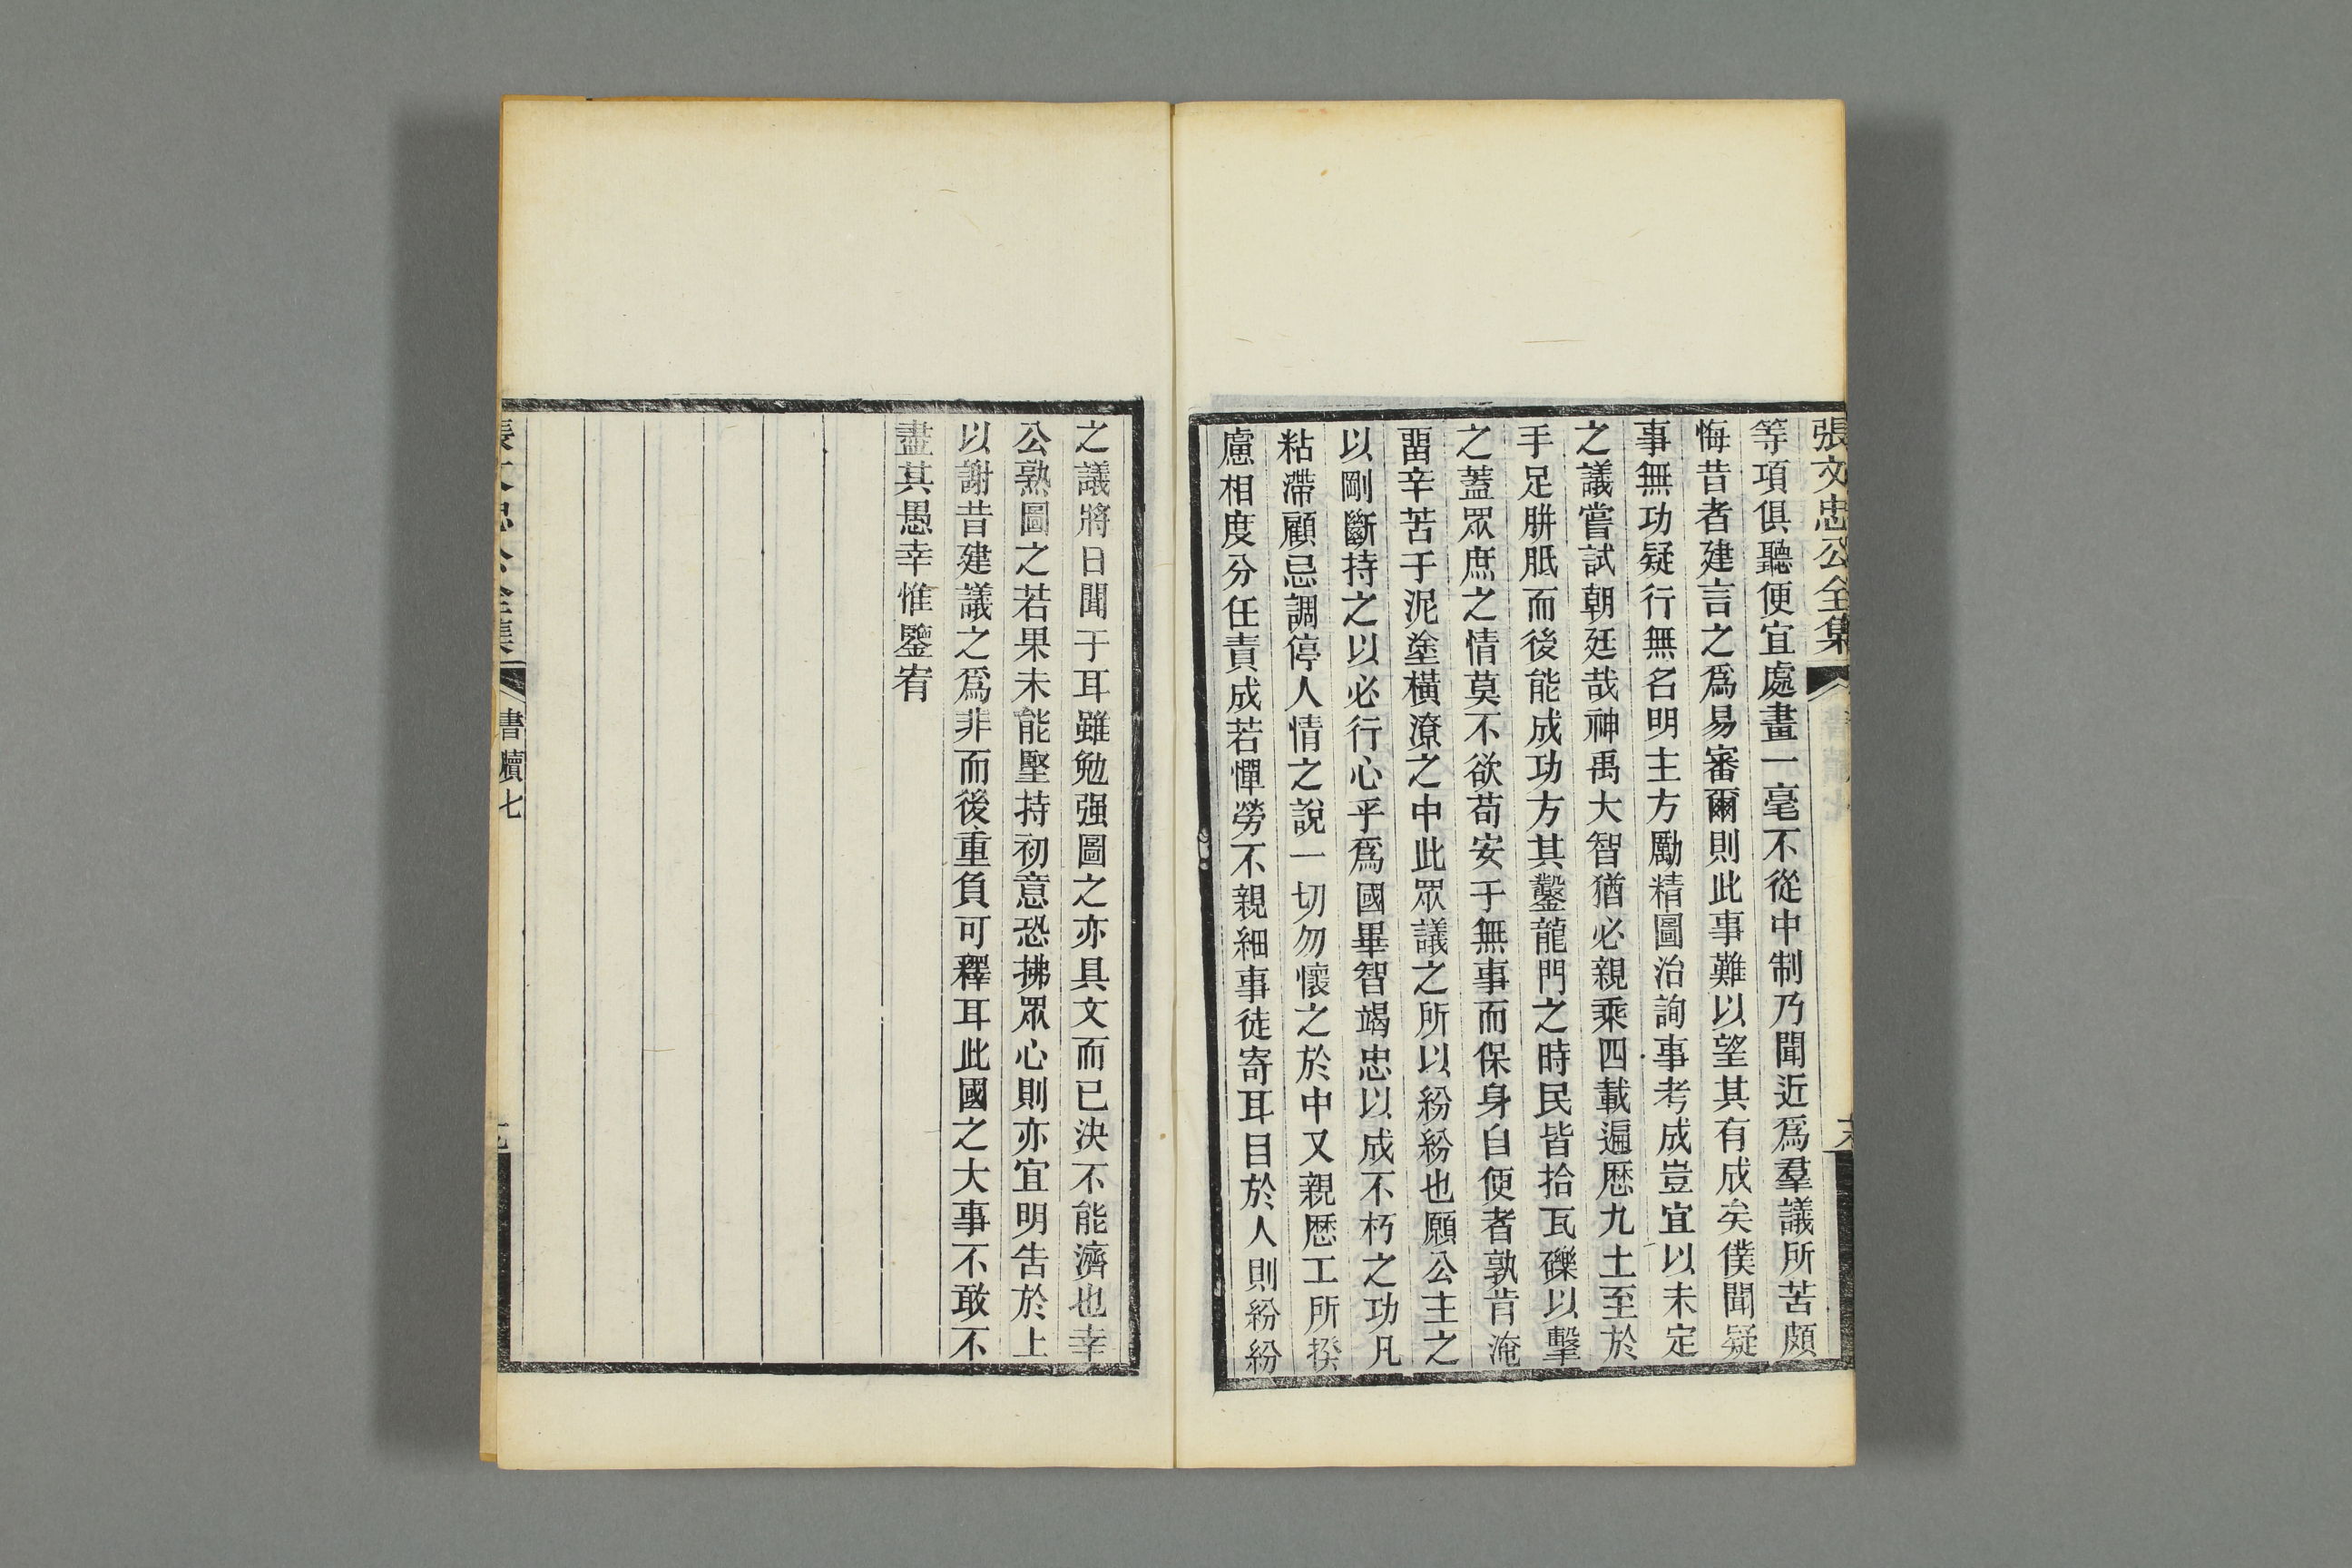 張文忠公全集
等項俱聽便宜處畫一毫不從中制乃聞近爲羣議所苦頗
悔昔者建言之爲易審爾則此事難以望其有成矣僕聞疑
事無功疑行無名明主方勵精圖治詢事考成豈宜以未定
之議嘗試朝廷哉神禹大智猶必親乘四載遍歷九土至於
手足胼胝而後能成功方其鑿龍門之時民皆拾瓦礫以擊
之蓋眾庶之情莫不欲苟安于無事而保身自便者孰肯淹
畱辛苦于泥塗橫潦之中此眾議之所以紛紛也願公主之
以剛斷持之以必行心乎爲國畢智竭忠以成不朽之功凡
粘滯顧忌調停人情之說一切勿懷之於中又親歷工所揆
慮相度分任責成若憚勞不親細事徒寄耳目於人則紛紛
之議將日聞于耳雖勉强圖之亦具文而已決不能濟也幸
公熟圖之若果未能堅持初意恐拂眾心則亦宜明告於上
以謝昔建議之爲非而後重負可釋耳此國之大事不敢不
盡其愚幸惟鑒宥
張文忠公全集
書牘七